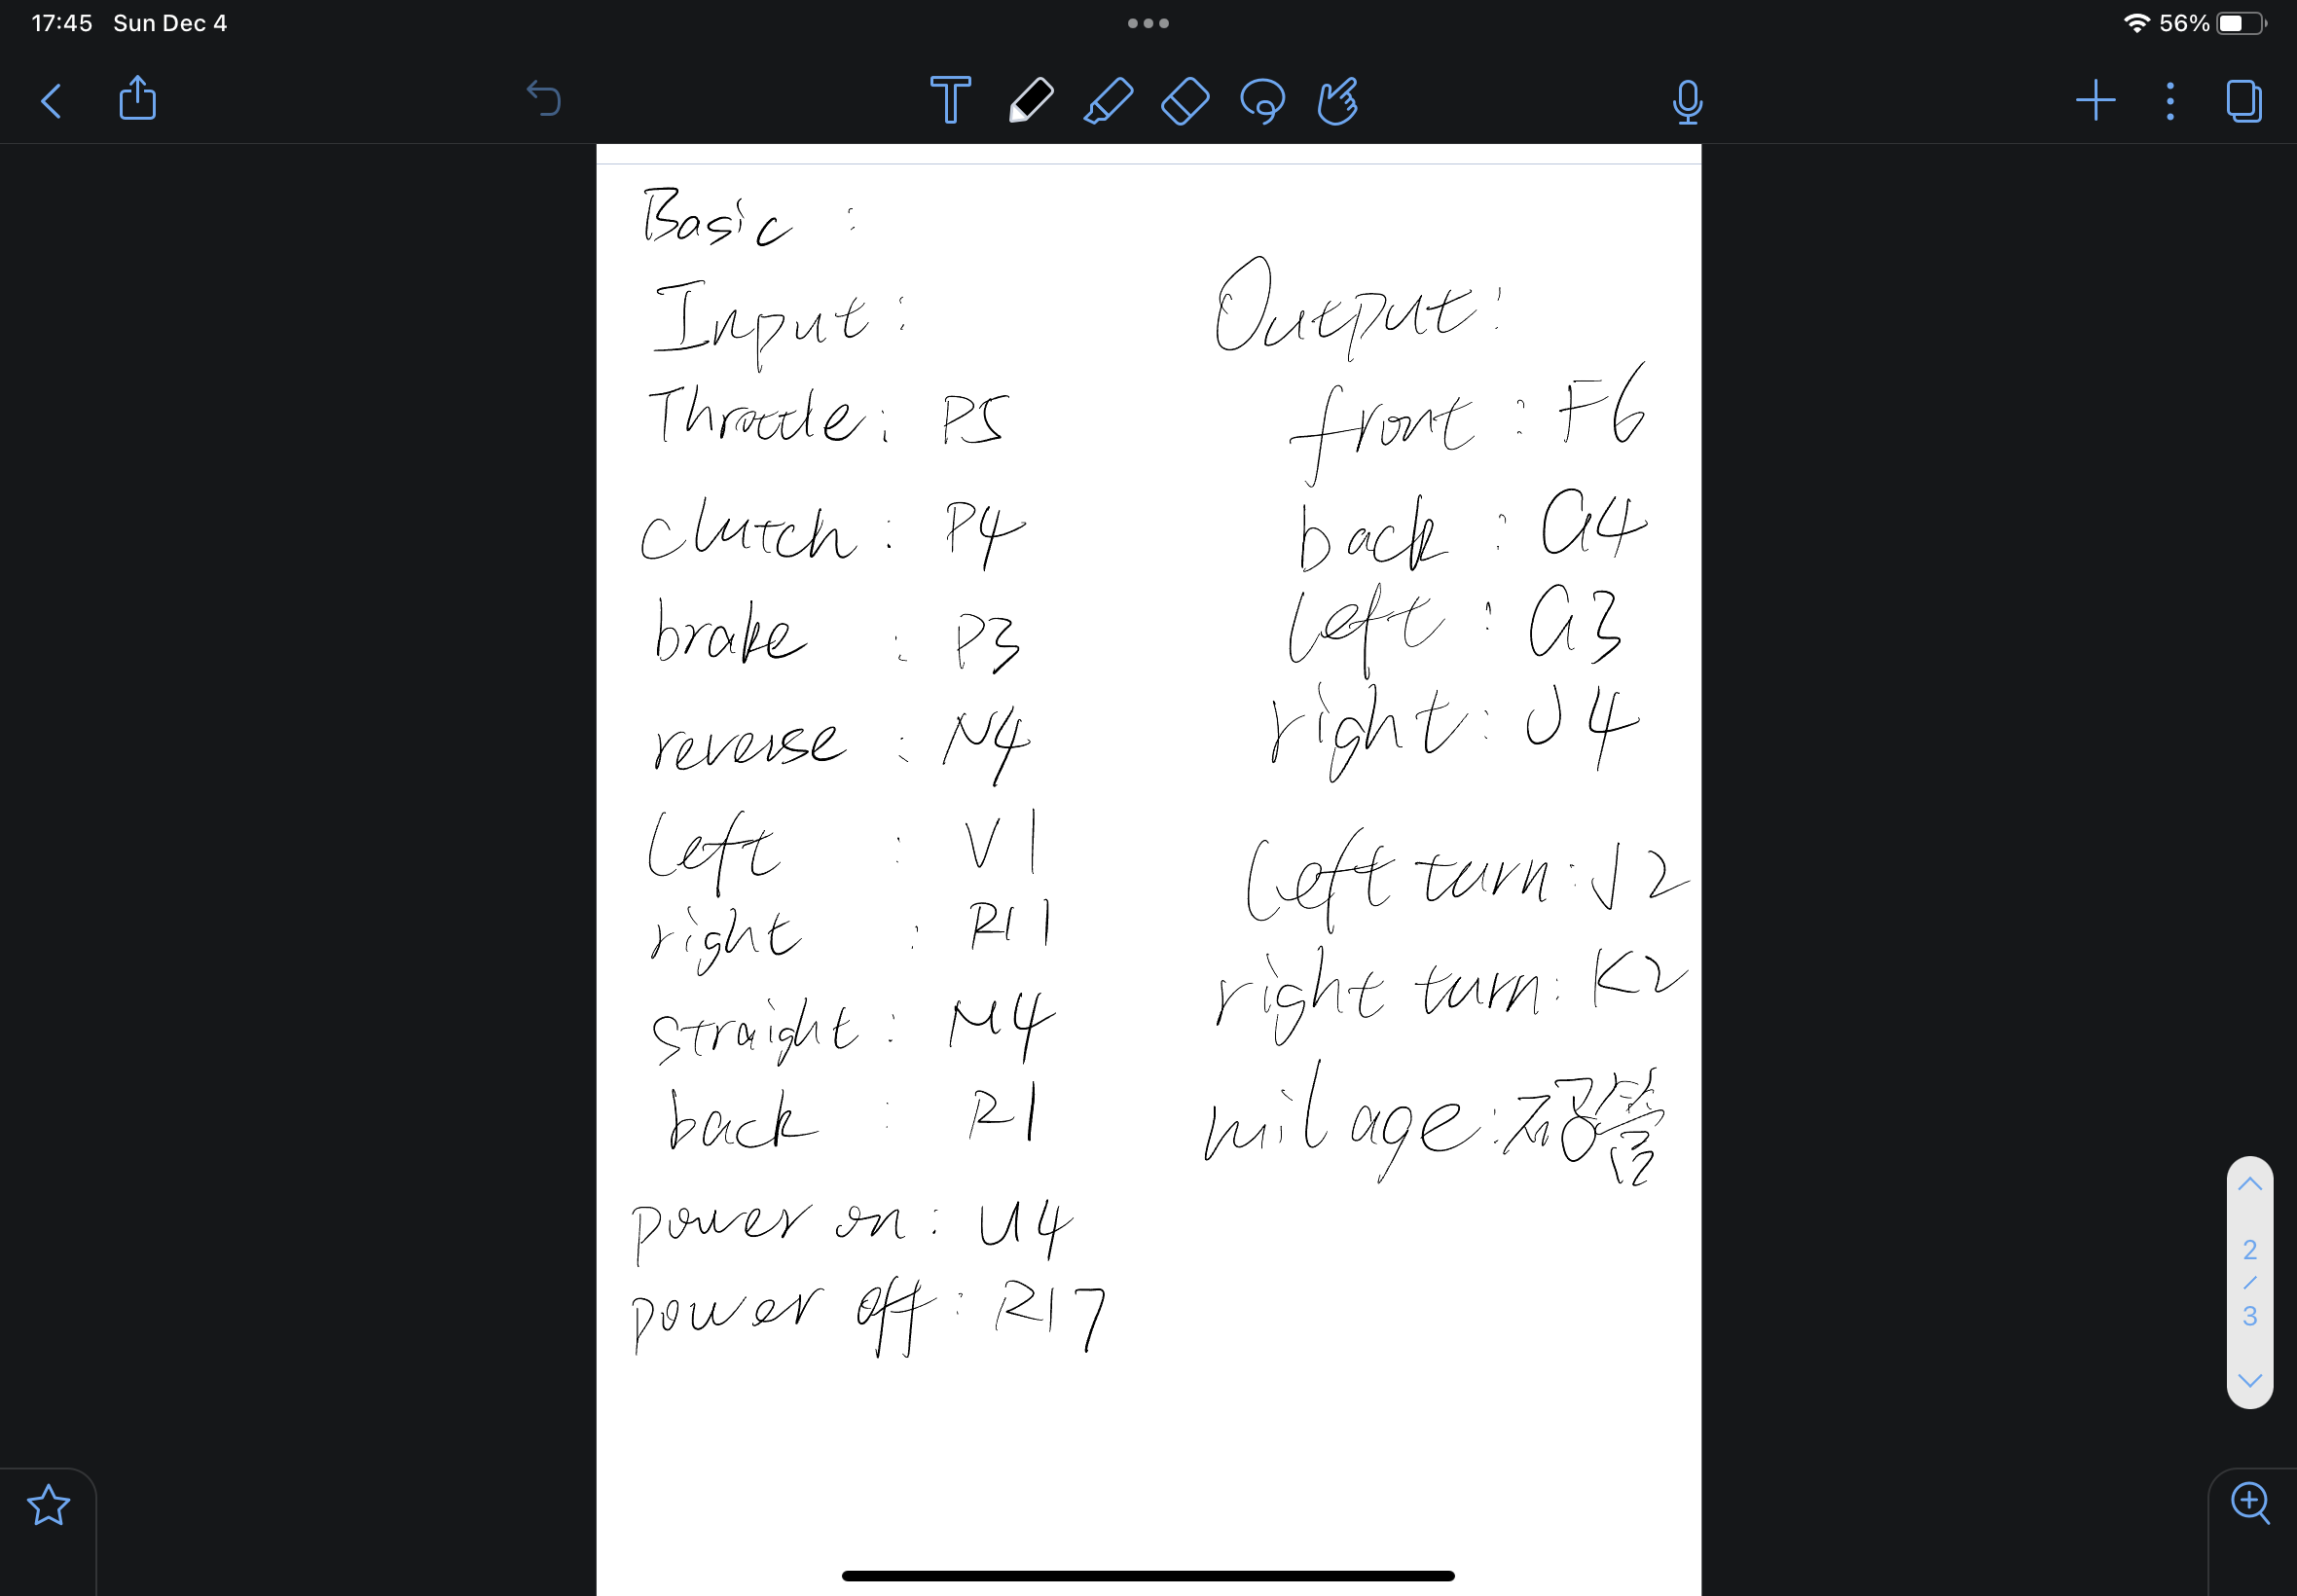 17:45 Sun Dec 4
56%
Basic :
Input :
Throttle : P5
clutch : P4
brake : P3
reverse : N4
left : V1
right : R11
straight : M4
back : R1
power on : U4
power off : R17
Output :
front : F6
back : G4
left : G3
right : J4
left turn : J2
right turn : K2
milage : 码管
2
/
3